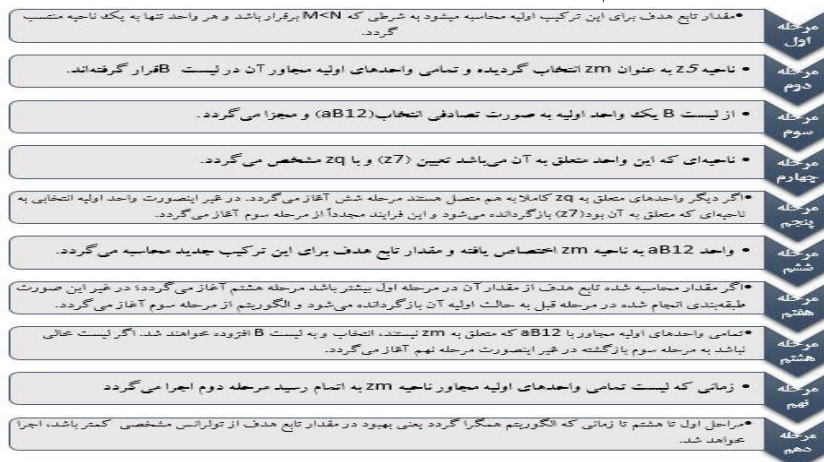 مرحله اول
•مقدار تابع هدف برای این ترکیب اولیه محاسبه میشود به شرطی که M<N برقرار باشد و هر واحد تنها به یک ناحیه منتسب
گردد.
مرحله دوم
• ناحیه z5 به عنوان zm انتخاب گردیده و تمامی واحدهای اولیه مجاور آن در لیست Bقرار گرفته‌اند.
مرحله سوم
• از لیست B یک واحد اولیه به صورت تصادفی انتخاب(aB12) و مجزا می‌گردد.
مرحله چهارم
• ناحیه‌ای که این واحد متعلق به آن می‌باشد تعیین (z7) و با zq مشخص می‌گردد.
مرحله پنجم
•اگر دیگر واحدهای متعلق به zq کاملا به هم متصل هستند مرحله شش آغاز می‌گردد. در غیر اینصورت واحد اولیه انتخابی به
ناحیه‌ای که متعلق به آن بود(z7) بازگردانده می‌شود و این فرایند مجدداً از مرحله سوم آغاز می‌گردد.
مرحله ششم
• واحد aB12 به ناحیه zm اختصاص یافته و مقدار تابع هدف برای این ترکیب جدید محاسبه می‌گردد.
مرحله هفتم
•اگر مقدار محاسبه شده تابع هدف از مقدار آن در مرحله اول بیشتر باشد مرحله هشتم آغاز می‌گردد؛ در غیر این صورت
طبقه‌بندی انجام شده در مرحله قبل به حالت اولیه آن بازگردانده می‌شود و الگوریتم از مرحله سوم آغاز می‌گردد.
مرحله هشتم
•تمامی واحدهای اولیه مجاور با aB12 که متعلق به zm نیستند، انتخاب و به لیست B افزوده خواهند شد. اگر لیست خالی
نباشد به مرحله سوم بازگشته در غیر اینصورت مرحله نهم آغاز می‌گردد.
مرحله نهم
• زمانی که لیست تمامی واحدهای اولیه مجاور ناحیه zm به اتمام رسید مرحله دوم اجرا می‌گردد
مرحله دهم
•مراحل اول تا هشتم تا زمانی که الگوریتم همگرا گردد یعنی بهبود در مقدار تابع هدف از تولرانس مشخصی کمتر باشد، اجرا
خواهد شد.